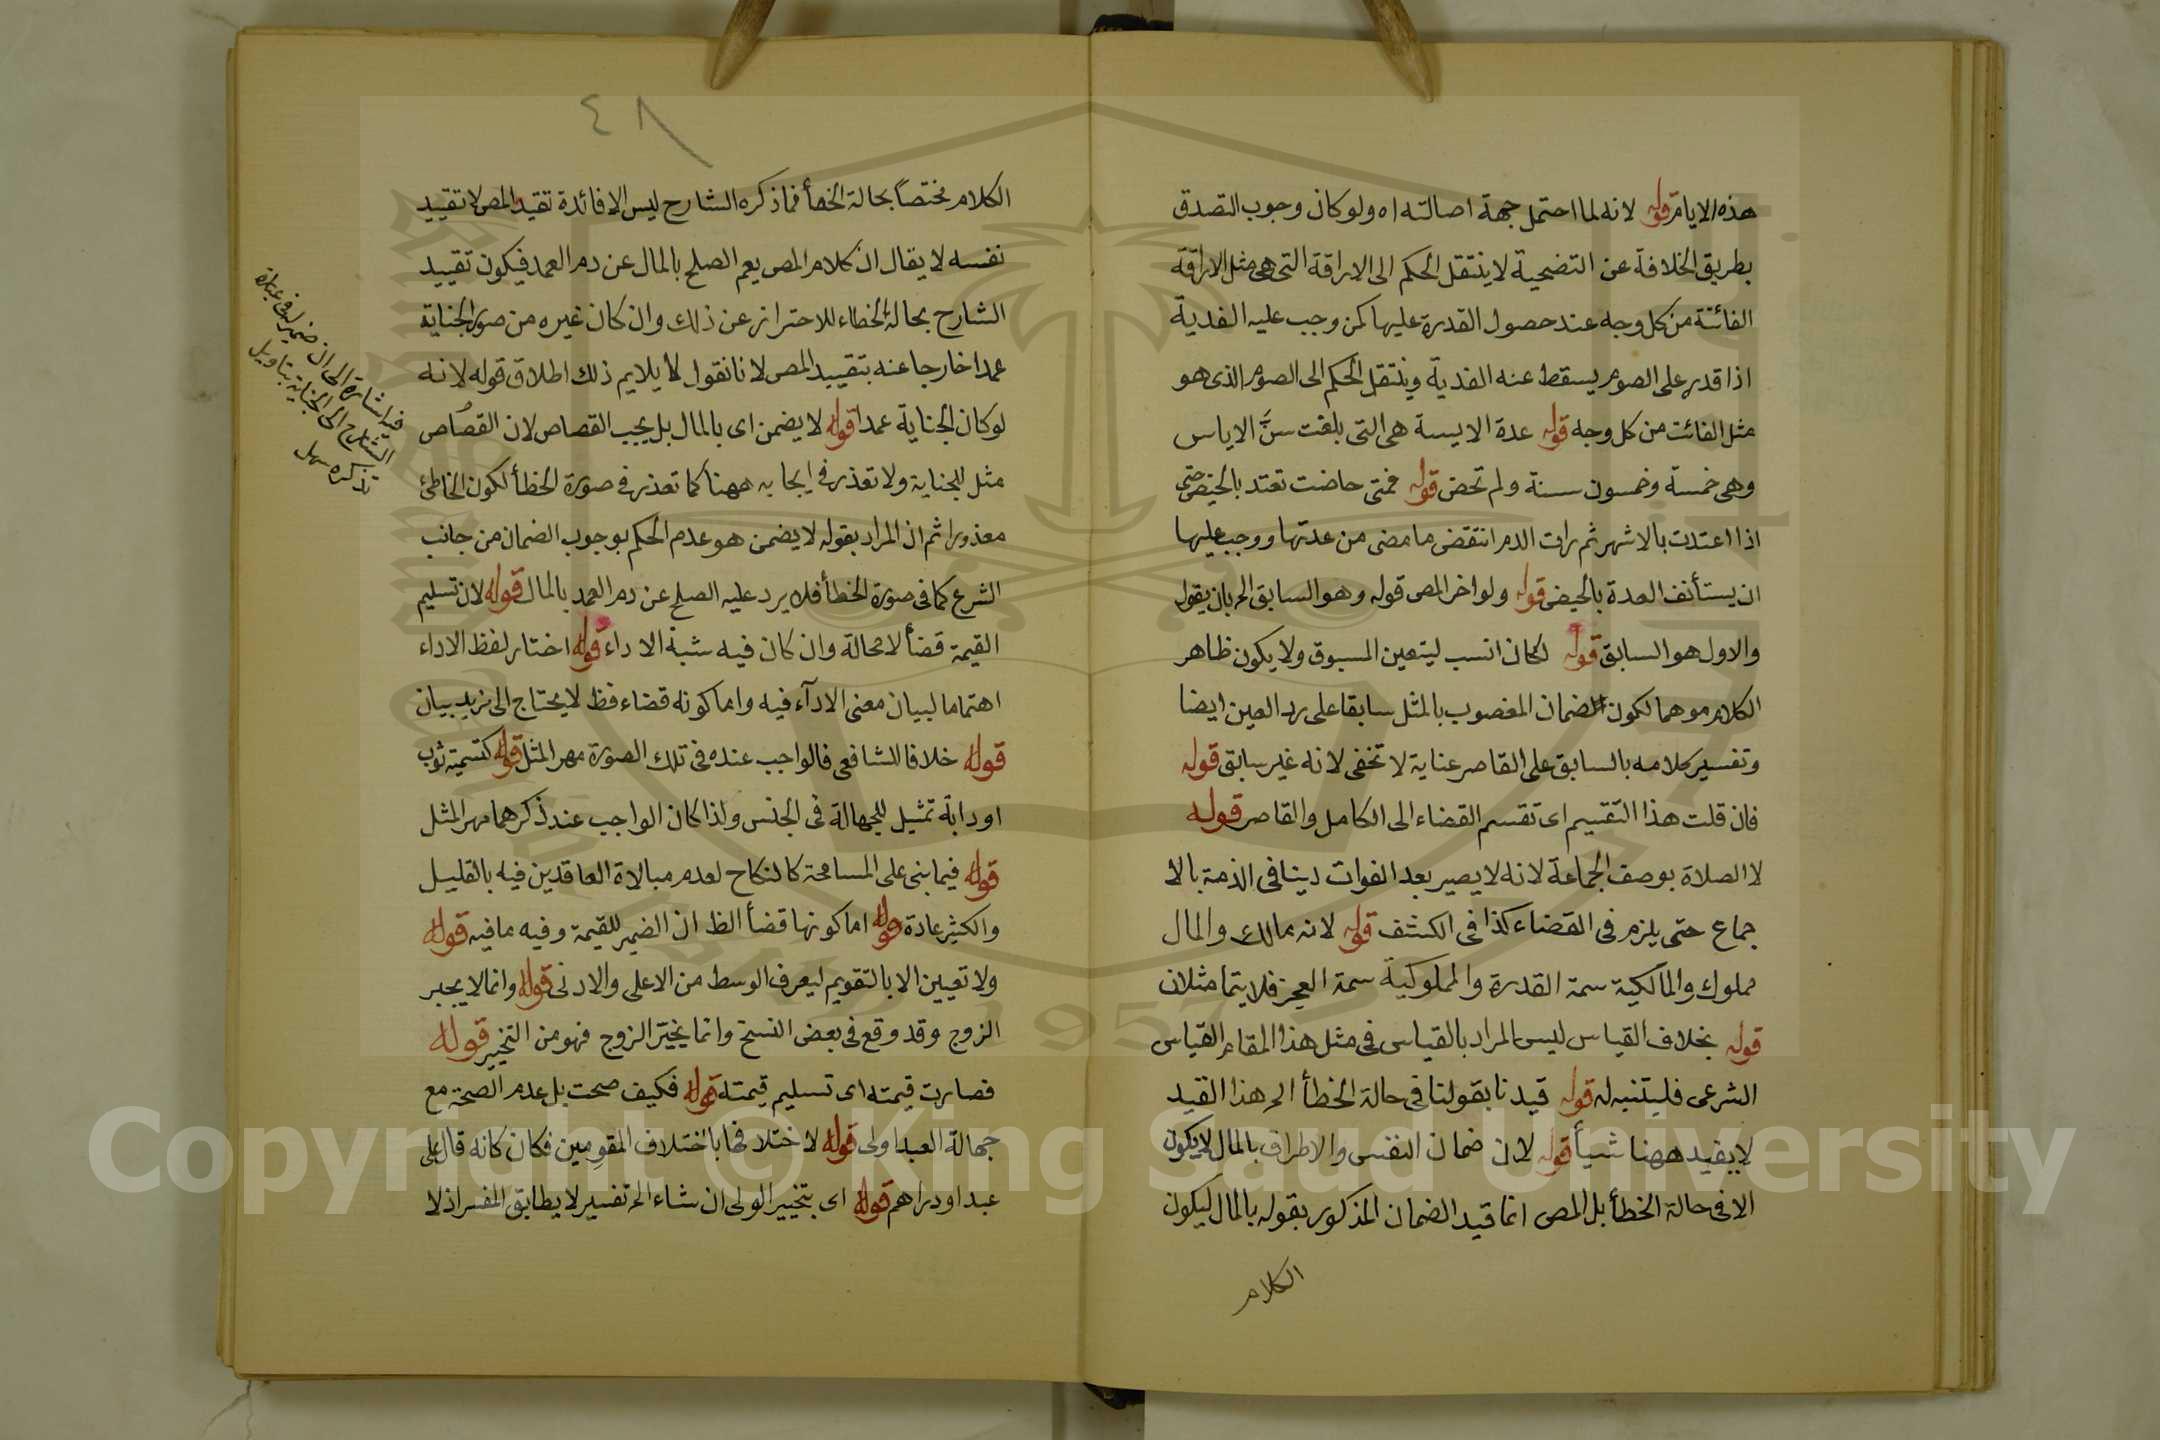 هذه الايام قوله لانه لما احتمل جهة اصالته اه ولو كان وجوب التصدق
بطريق الخلافة عن التضحية لا ينتقل الحكم الى الاراقة التى هى مثل الاراقة
الفائتة من كل وجه عند حصول القدرة عليها كمن وجب عليه الفدية
اذا قدر على الصوم يسقط عنه الفدية وينتقل الحكم الى الصوم الذى هو
مثل الفائت من كل وجه قوله عدة الايسة هى التى بلغت سنَّ الاياس
وهى خمسة وخمسون سنة ولم تحض قوله فمتى حاضت تعتد بالحيض حتى
اذا اعتدت بالاشهر ثم رات الدم انتقض ما مضى من عدتها ووجب عليها
ان يستأنف العدة بالحيض قوله ولو اخر المص قوله وهو السابق الخ بان يقول
والاول هو السابق قوله لكان انسب ليتعين المسبوق ولا يكون ظاهر
الكلام موهما لكون الضمان المغصوب بالمثل سابقا على رد العين ايضا
وتفسير كلامه بالسابق على القاصر عناية لا تخفى لانه غير سابق قوله
فان قلت هذا التقسيم اى تقسم القضاء الى الكامل والقاصر قوله
لا الصلاة بوصف الجماعة لانه لا يصير بعد الفوات دينا فى الذمة بالا
جماع حتى يلزم فى القضاء كذا فى الكشف قوله لانه مالك والمال
مملوك والمالكية سمة القدرة والمملوكية سمة العجز فلا يتماثلان
قوله بخلاف القياس ليس المراد بالقياس فى مثل هذا المقام القياس
الشرعى فليتنبه له قوله قيدنا بقولنا فى حالة الخطأ الخ هذا القيد
لا يفيد ههنا شيأ قوله لان ضمان النفس والاطراف بالمال لا يكون
الا فى حالة الخطأ بل المص انما قيد الضمان المذكور بقوله بالمال ليكون
الكلام
٤٨
الكلام مختصاً بحالة الخطأ فما ذكره الشارح ليس الا فائدة تقيد المص لا تقييد
نفسه لا يقال ان كلام المص يعم الصلح بالمال عن دم العمد فيكون تقييد
الشارح بحالة الخطاء للاحتراز عن ذلك وان كان غيره من صور الجناية
عمدا خارجا عنه بتقييد المص لانا نقول لا يلايم ذلك اطلاق قوله لانه
لو كان الجناية عمدا قوله لا يضمن اى بالمال بل يجب القصاص لان القصاص
مثل للجناية ولا تعذر فى ايجابه ههنا كما تعذر فى صورة الخطأ لكون الخاطئ
معذورا ثم ان المراد بقوله لا يضمن هو عدم الحكم بوجوب الضمان من جانب
الشرع كما فى صورة الخطأ فلا يرد عليه الصلح عن دم العمد بالمال قوله لان تسليم
القيمة قضأ لا محالة وان كان فيه شبه الاداء قوله اختار لفظ الاداء
اهتماما لبيان معنى الادآء فيه واما كونه قضاء فظ لا يحتاج الى مزيد بيان
قوله خلافا للشافعى فالواجب عنده فى تلك الصورة مهر المثل قوله كتسمية ثوب
او دابة تمثيل للجهالة فى الجنس ولذا كان الواجب عند ذكرهما مهر المثل
قوله فيما بنى على المسامحة كالنكاح لعدم مبالاة العاقدين فيه بالقليل
والكثير عادة قوله اما كونها قضأ الظ ان الضمير للقيمة وفيه ما فيه قوله
ولا تعيين الا بالتقويم ليعرف الوسط من الاعلى والادنى قوله وانما لا يجبر
الزوج وقد وقع فى بعض النسخ وانما يخيّر الزوج فهو من التخيير قوله
فصارت قيمته اى تسليم قيمته قوله فكيف صحت بل عدم الصحة مع
جهالة العبد اولى قوله لاختلافها باختلاف المقومين فكان كانه قال على
عبد او دراهم قوله اى بتخيير الولى ان شاء الخ تفسير لا يطابق المفسر اذ لا
فيه اشارة الى ان ضمير له فى عبارة
الشارح الى الجناية بتاويل
تذكره سهل
1957
Copyright © King Saud University